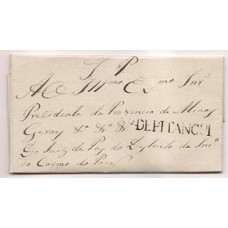 S P
A O Illmo Exmo Snr
Presidente da Provincia de Minas
Geraes &a &a &a DE PITANGUI
Do Juiz de Paz do Destricto da Snra
do Carmo do Pará